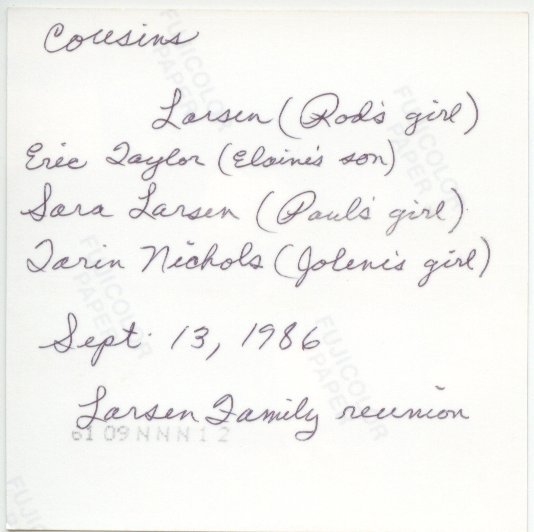 Cousins
Larsen (Rod's girl)
Eric Taylor (Elaine's son)
Sara Larsen (Paul's girl)
Tarin Nichols (Jolene's girl)
Sept. 13, 1986
Larsen Family reunion
61 09 NNN 12
FUJICOLOR PAPER
FUJICOLOR PAPER
FUJICOLOR PAPER
FUJICOLOR PAPER